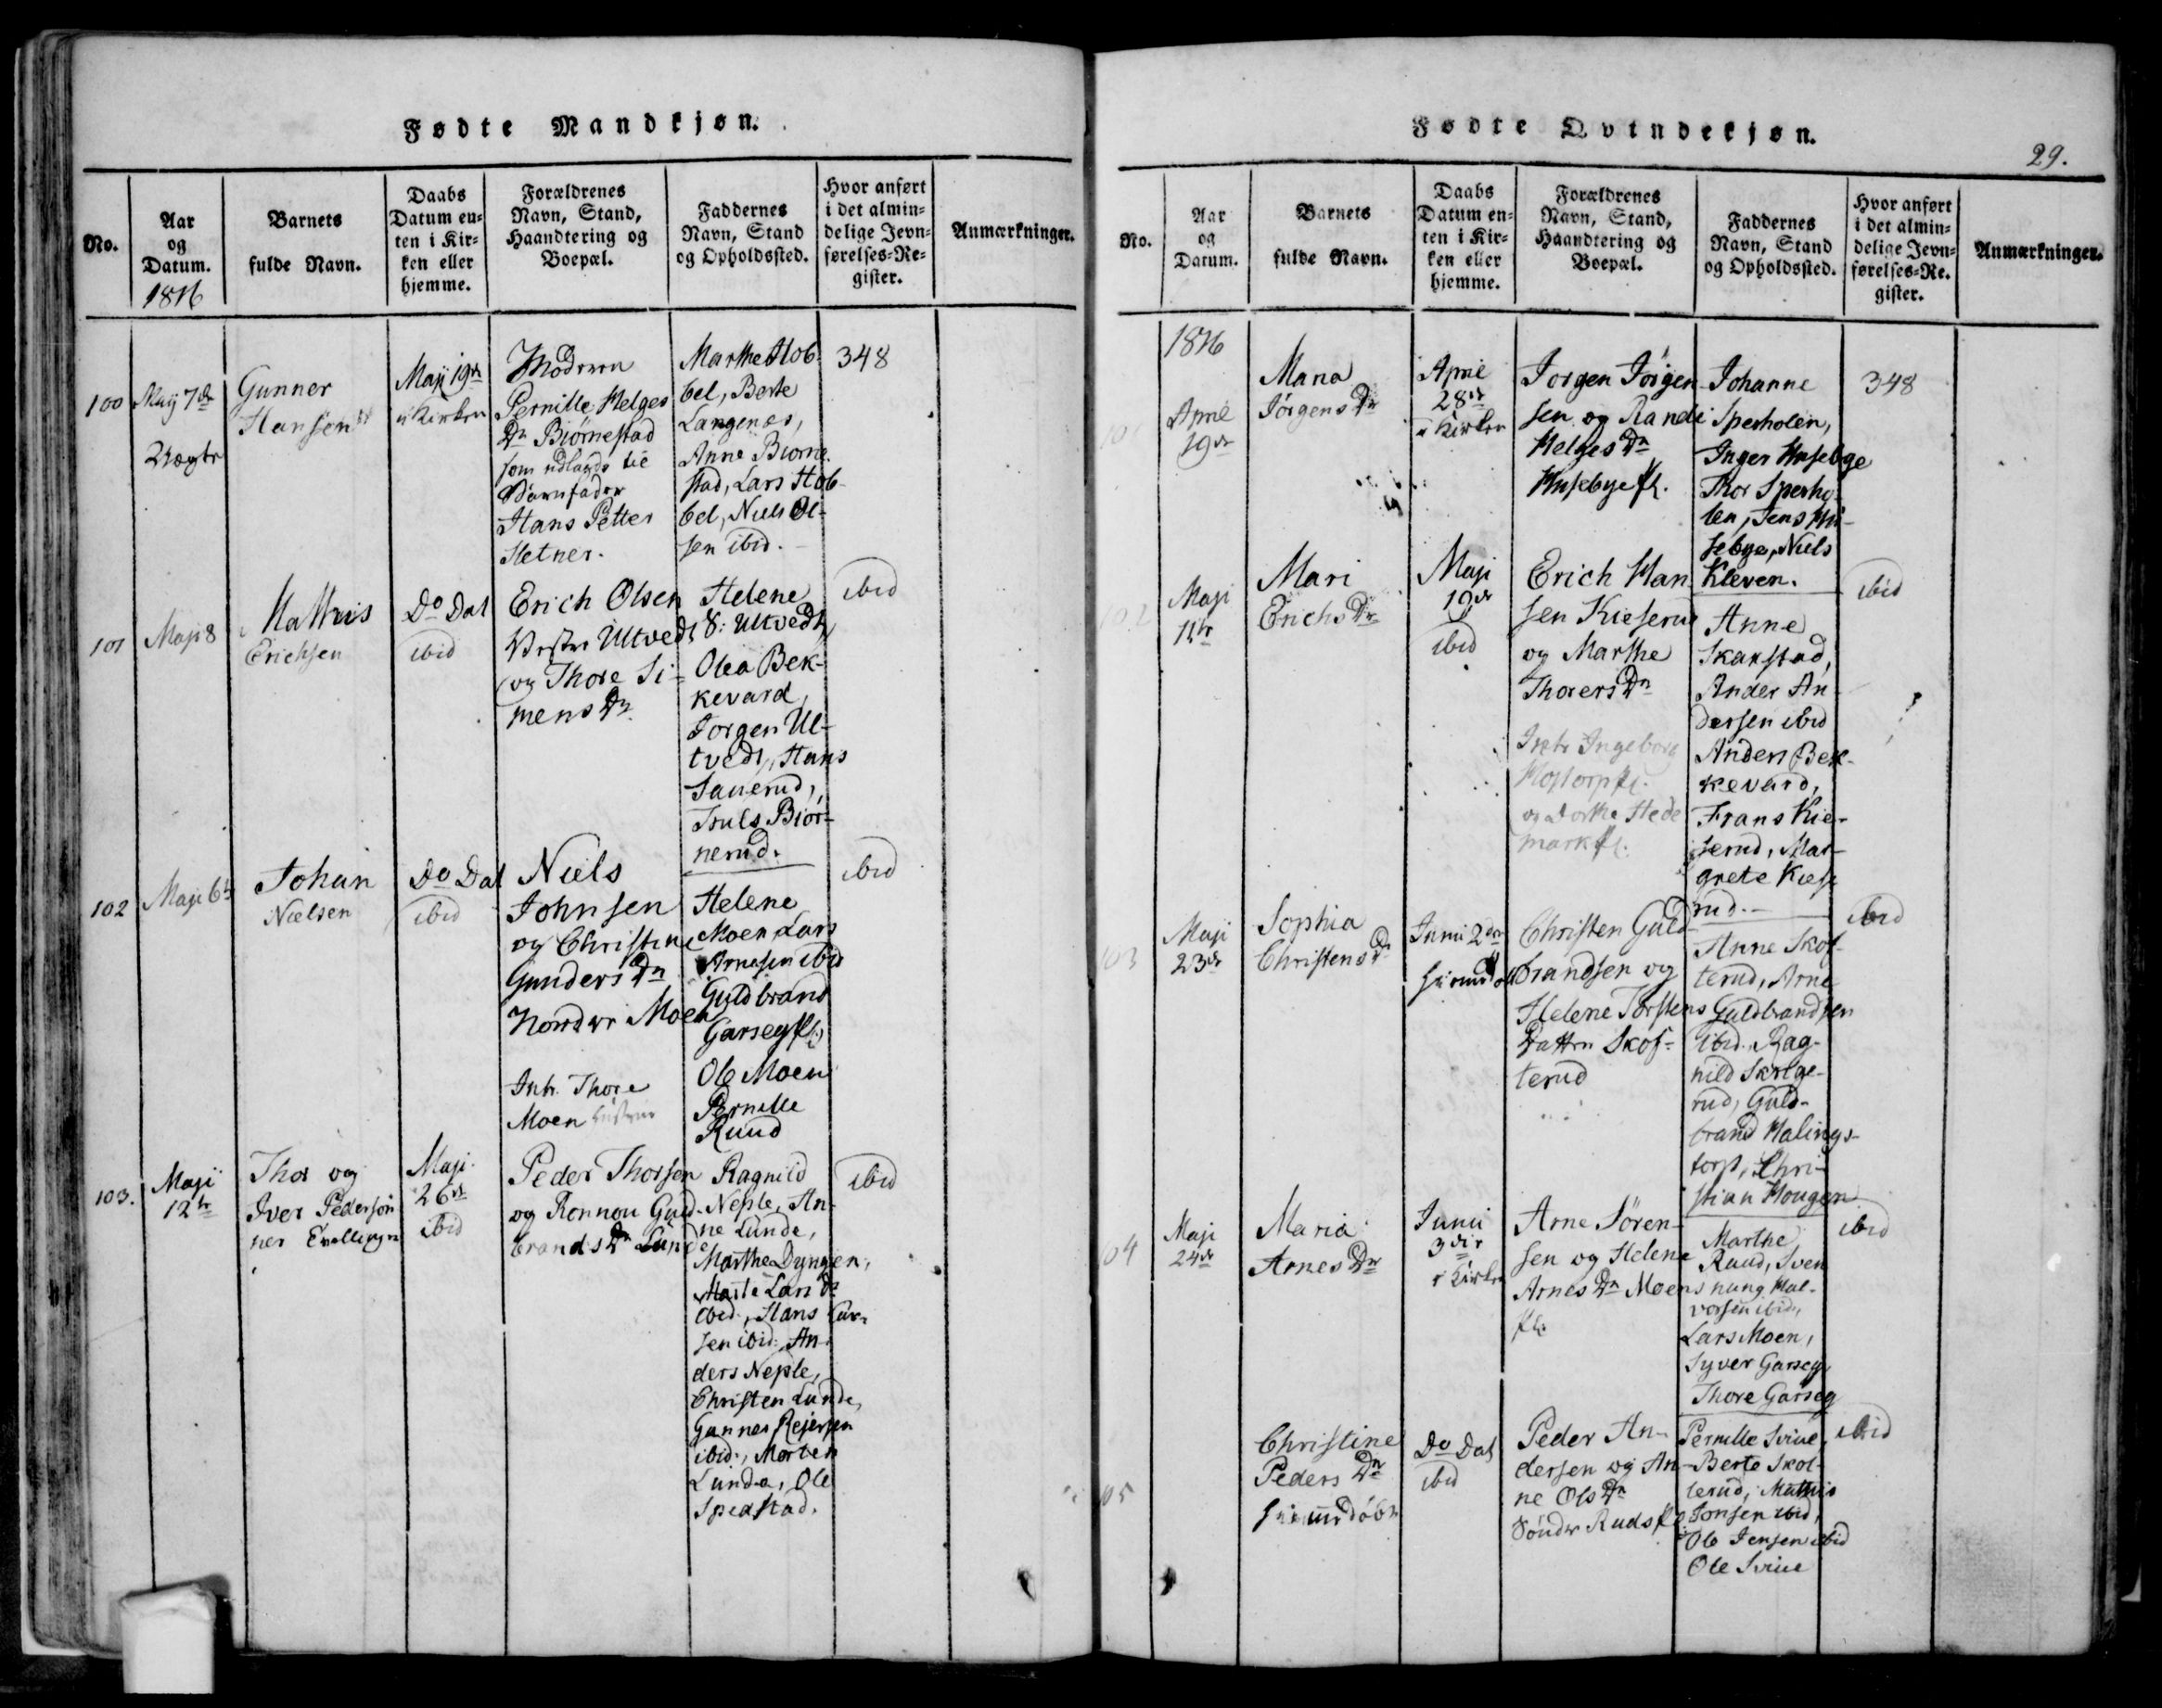 Fødte Mandkjøn.
No.
Aar
og
Datum.
1816
Barnets
fulde Navn.
Daabs
Datum en=
ten i Kir=
ken eller
hjemme.
Forældrenes
Navn, Stand,
Haandtering og
Boepæl.
Faddernes
Navn, Stand
og Opholdssted.
Hvor anført
i det almin=
delige Jevn=
førelses=Re=
gister.
Anmærkninger.
100
Maij 7de
Uægte
Gunner
Hansen
Maji 19de
i Kirken
Moderen
Pernille Helges
Dr Biørnestad
som udlagde til
Barnfader
Hans Petter
Hetner.
Marthe Hob
bel, Berte
Langenæs,
Anne Biørne
stad, Lars Hob
bel, Niels Ol-
sen ibid.
348
101
Maji 8
Mathis
Erichsen
Do Dat
ibid
Erich Olsen
Vestre Ultvedt
og Thore Si-
mens Dr
Helene
8: Ultvedt,
Olea Bek-
kevard,
Jørgen Ul-
tvedt, Hans
Sauerud,
Truls Biør-
nerud.
ibid
102
Maji 6te
Johan
Nielsen
Do Dat
ibid
Niels
Johnsen
og Christine
Gunders Dr
Nordre Moen
Intr. Thore
Moen
Helene
Moen, Lars
Arnesen ibid
Guldbrand
Garseg
Ole Moen
Pernille
Ruud
ibid
103.
Maji
12te
Thor og
Iver Pedersøn
ner Tvillinger
Maji
26de
ibid
Peder Thorsen
og Ronnou Guld
brands Dr Lunde
Ragnild
Neple, An-
ne Lunde,
Marthe Dyngen,
Marte Lars Dr
ibid, Hans Lar-
sen ibid: An-
ders Neple,
Christen Lunde,
Gunner Rejersen
ibid:, Morten
Lunde, Ole
Spedstad.
ibid
Fødte Qvindekjøn.
29.
No.
Aar
og
Datum.
Barnets
fulde Navn.
Daabs
Datum en=
ten i Kir=
ken eller
hjemme.
Forældrenes
Navn, Stand,
Haandtering og
Boepæl.
Faddernes
Navn, Stand
og Opholdssted.
Hvor anført
i det almin=
delige Jevn=
førelses=Re.
gister.
Anmærkninger.
1816
101
April
19de
Maria
Jørgens Dr
April
28de
i Kirken
Jørgen Jørgen
sen og Randi
Helges Dr
Husebye
Johanne
Sperholen,
Inger Husebye
Thor Sperho-
len, Jens Hu-
sebye, Niels
Kleven.
348
102
Maji
11te
Mari
Erichs Dr
Maji
19de
ibid
Erich Han
sen Kieserud
og Marthe
Thorers Dr
Intr Ingeborg
og Dorthe Hede
mark
Anne
Skarstad,
Ander An-
dersen ibid
Anders Bek-
kevard,
Frans Kie-
serud, Mar-
grete Kiese
rud.
ibid
103
Maji
23de
Sophia
Christens Dr
Junii 2den
Christen Guld
brandsen og
Helene Torstens
Datter Skof-
terud
Anne Skof-
terud, Arne
Guldbrandsen
ibid. Rag-
nild Skrige-
rud, Guld-
brand Malings-
torp, Chri-
stian Hougen
ibid
104
Maji
24de
Maria
Arnes Dr
Junii
3die
i Kirken
Arne Søren-
sen og Helene
Arnes Dr Moens
Marthe
Ruud, Sven
nung Hal-
vorsen ibid,
Lars Moen,
Syver Garseg,
Thore Garseg
ibid
105
Christine
Peders Dr
Do Dat
ibid
Peder An-
dersen og An-
ne Ols Dr
Sønder Ruds
Pernille Sviue,
Berte Skof-
terud, Mathis
Jonsen ibid,
Ole Jensen ibid
Ole Sviue
ibid